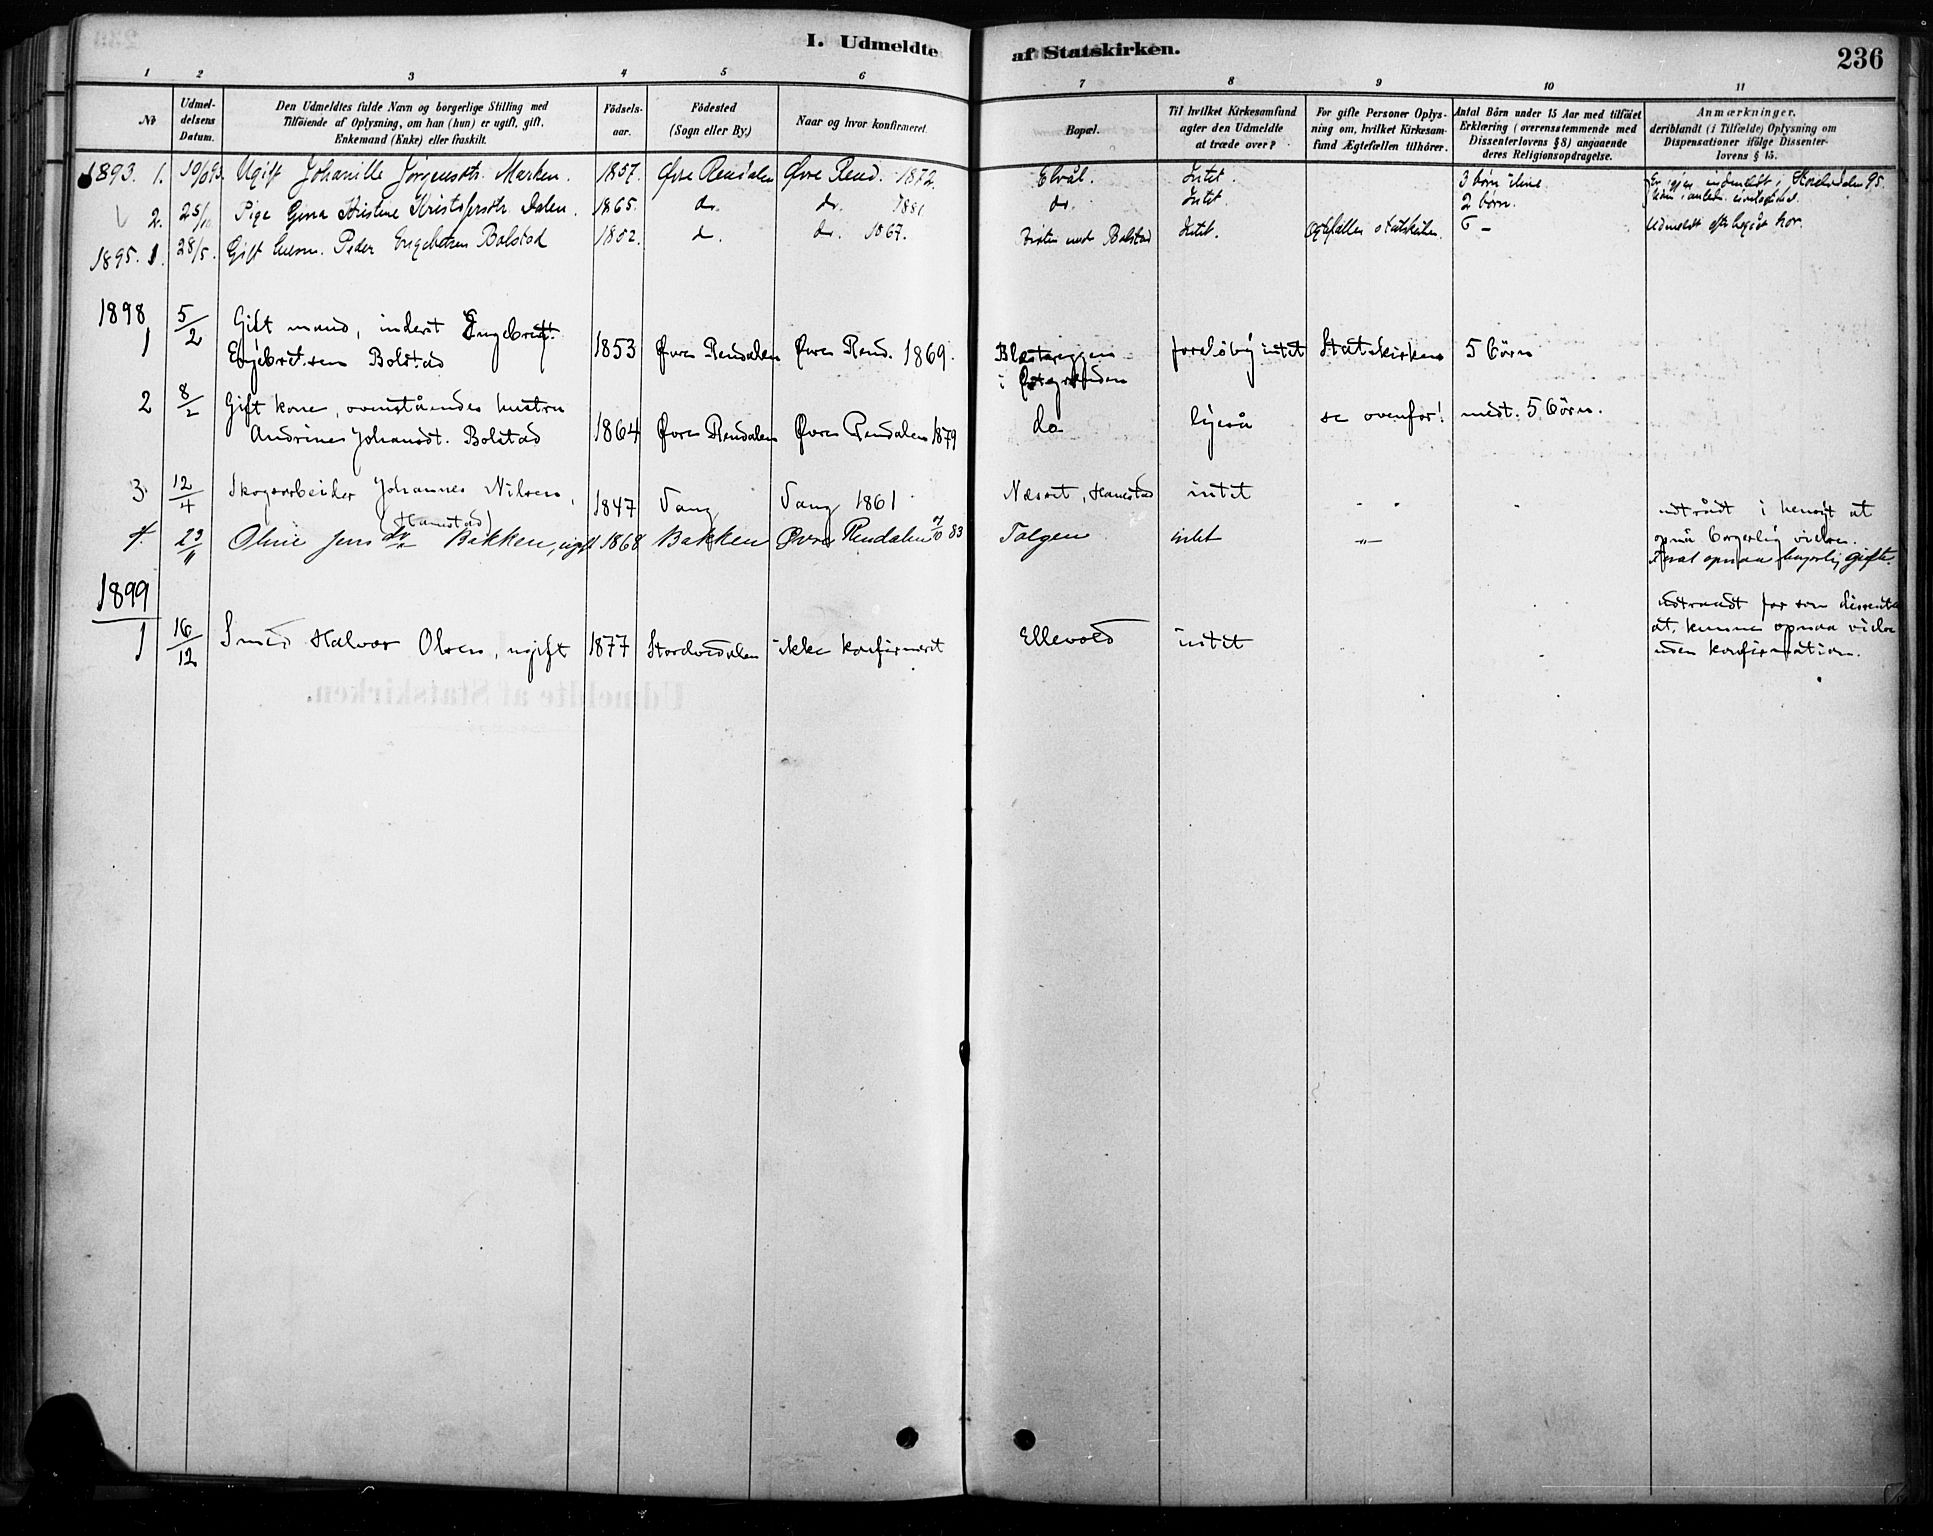 I. Udmeldte af Statskirken. 236
1 2 3 4 5 6 7 8 9 10 11
No
Udmel-
delsens
Datum.
Den Udmeldtes fulde Navn og borgerlige Stilling med
Tilföiende af Oplysning, om han (hun) er ugift, gift,
Enkemand (Enke) eller fraskilt.
Födsels-
aar.
Födested
(Sogn eller By.)
Naar og hvor konfirmeret.
Bopæl.
Til hvilket Kirkesamfund
agter den Udmeldte
at træde over?
For gifte Personer Oplys-
ning om, hvilket Kirkesam-
fund Ægtefællen tilhörer.
Antal Börn under 15 Aar med tilföiet
Erklæring (overensstemmende med
Dissenterlovens § 8) angaaende
deres Religionsopdragelse.
Anmærkninger,
deriblandt (i Tilfælde) Oplysning om
Dispensationer ifölge Dissenter-
lovens § 15.
1893. 1. 10/93. Ugift Johanille Jörgensdtr. Marken. 1857. Øvre Rendalen Øvre Rend. 1872. Elvål. Intet. 3 börn
Er igjen indmeldt i Storelvdalen 95.
2. 25/ Pige Gina Kristine Kristofersdtr. Dalen. 1865. do. do. 1881 do. Intet. 2 börn.
1895. 1. 28/5. Gift Peder Engebretsen Bolstad 1852. do. do. 1867. Bolstad Intet. Ægtefællen statskirken. 5 –
Udmeldt efter begået hor.
1898
1 5/2 Gift mand, inderst Engebret
Engebretsen Bolstad 1853 Øvre Rendalen Øvre Rend. 1869.
i foreløbig intet Statskirken 5 börn
2 8/2 Gift kone, ovenståendes hustru
Andrine Johansdt. Bolstad 1864 Øvre Rendalen Øvre Rendalen 1879 do ligeså se ovenfor! medt. 5 börn.
3. 12/4 Skogsarbeider Johannes Nilsen, 1847 Vang Vang 1861 Næsset, Hanestad intet
udtrådt i hensigt at
opnå borgerlig vielse.
(Hanestad)
4. 23/11 Oline Jensdtr Bakken, ugift 1868 Bakken Øvre Rendalen 83 Tolgen intet –"–
opnaa borgerlig gifte.
1899
1 16/12 Smed Halvor Olsen, ugift 1877 Storelvedalen ikke konfirmeret Ellevold intet
udtraadt for som dissenter
at kunne opnaa vielse
uden konfirmation.
Udmeldte af Statskirken.